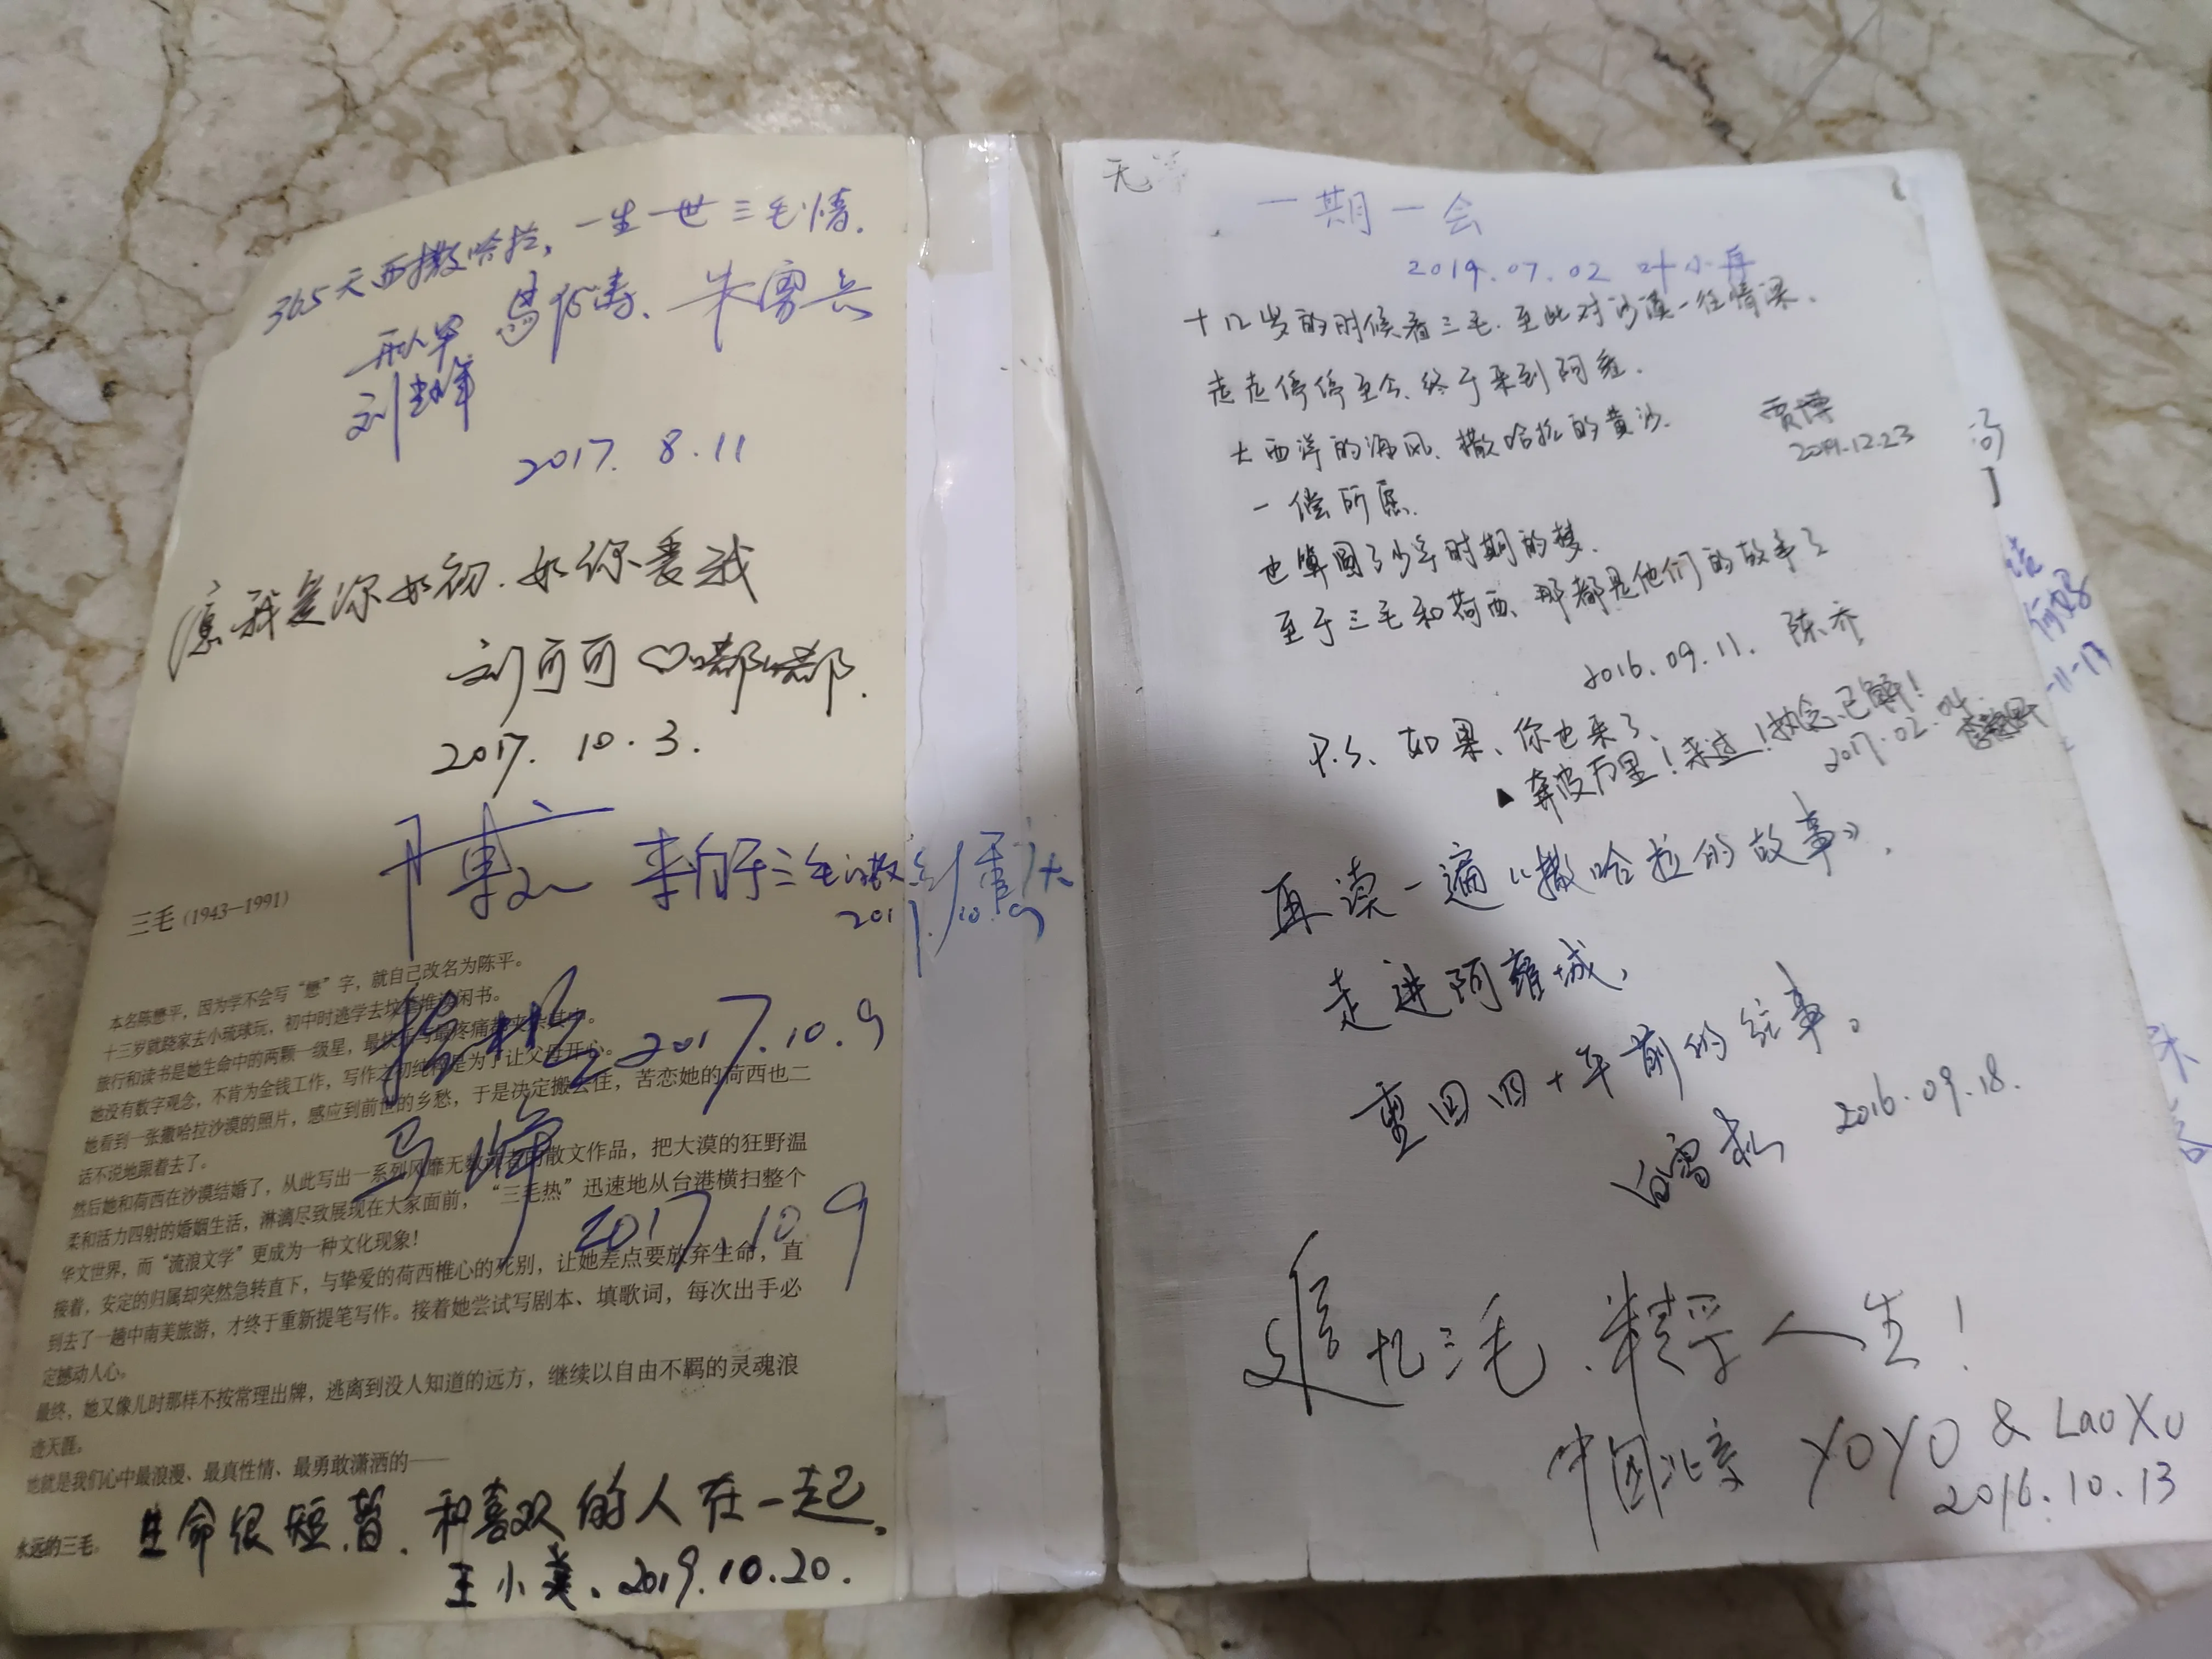 365天西撒哈拉，一生一世三毛情.
朱雳兵
2017. 8.11
愿我爱你如初. 如你爱我
刘可可♡嘟嘟.
2017. 10.3.
来自于三毛的撒
2017.10.9
三毛 (1943—1991)
本名陈懋平，因为学不会写“懋”字，就自己改名为陈平。
十三岁就跷家去小琉球玩，初中时逃学去坟 堆 闲书。
旅行和读书是她生命中的两颗一级星，最快 与最疼痛都夹杂其中。
她没有数字观念，不肯为金钱工作，写作之初纯粹是为了让父母开心。
她看到一张撒哈拉沙漠的照片，感应到前世的乡愁，于是决定搬去住，苦恋她的荷西也二
话不说地跟着去了。
然后她和荷西在沙漠结婚了，从此写出一系列风靡无数读者的散文作品，把大漠的狂野温
柔和活力四射的婚姻生活，淋漓尽致展现在大家面前，“三毛热”迅速地从台港横扫整个
华文世界，而“流浪文学”更成为一种文化现象！
接着，安定的归属却突然急转直下，与挚爱的荷西椎心的死别，让她差点要放弃生命，直
到去了一趟中南美旅游，才终于重新提笔写作。接着她尝试写剧本、填歌词，每次出手必
定撼动人心。
最终，她又像儿时那样不按常理出牌，逃离到没人知道的远方，继续以自由不羁的灵魂浪
迹天涯。
她就是我们心中最浪漫、最真性情、最勇敢潇洒的——
永远的三毛。
2017.10.9
马峰
2017.10 9
生命很短暂. 和喜欢的人在一起.
王小美. 2019.10.20.
无
一期一会
2019.07.02 叶小舟
十几岁的时候看三毛. 至此对沙漠一往情深.
走走停停至今. 终于来到阿尤.
大西洋的海风. 撒哈拉的黄沙.
一偿所愿.
贾博
2019.12.23
也算圆了少年时期的梦.
至于三毛和荷西、那都是他们的故事了
2016.09.11. 陈乔
P.S. 如果、你也来了、
奔波万里！来过！执念已解！
2017.02.04.
再读一遍《撒哈拉的故事》，
走进阿雍城，
重回四十年前的往事。
白雪松 2016.09.18.
追忆三毛. 精孚人生！
中国北京 YOYO & LaoXu
2016.10.13